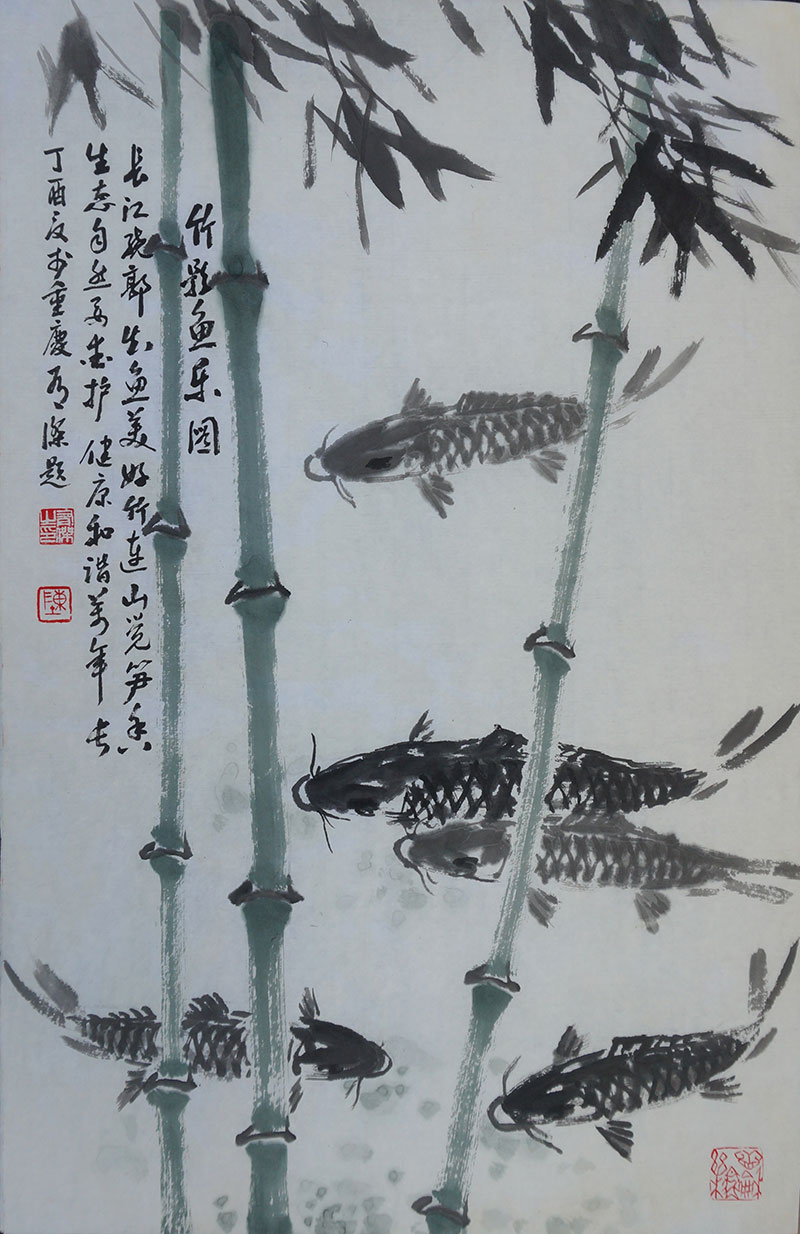 竹影鱼乐图
长江绕郭知鱼美好竹连山觉笋香
生态自然要爱护健康和谐万年长
丁酉夏于重庆题
陈